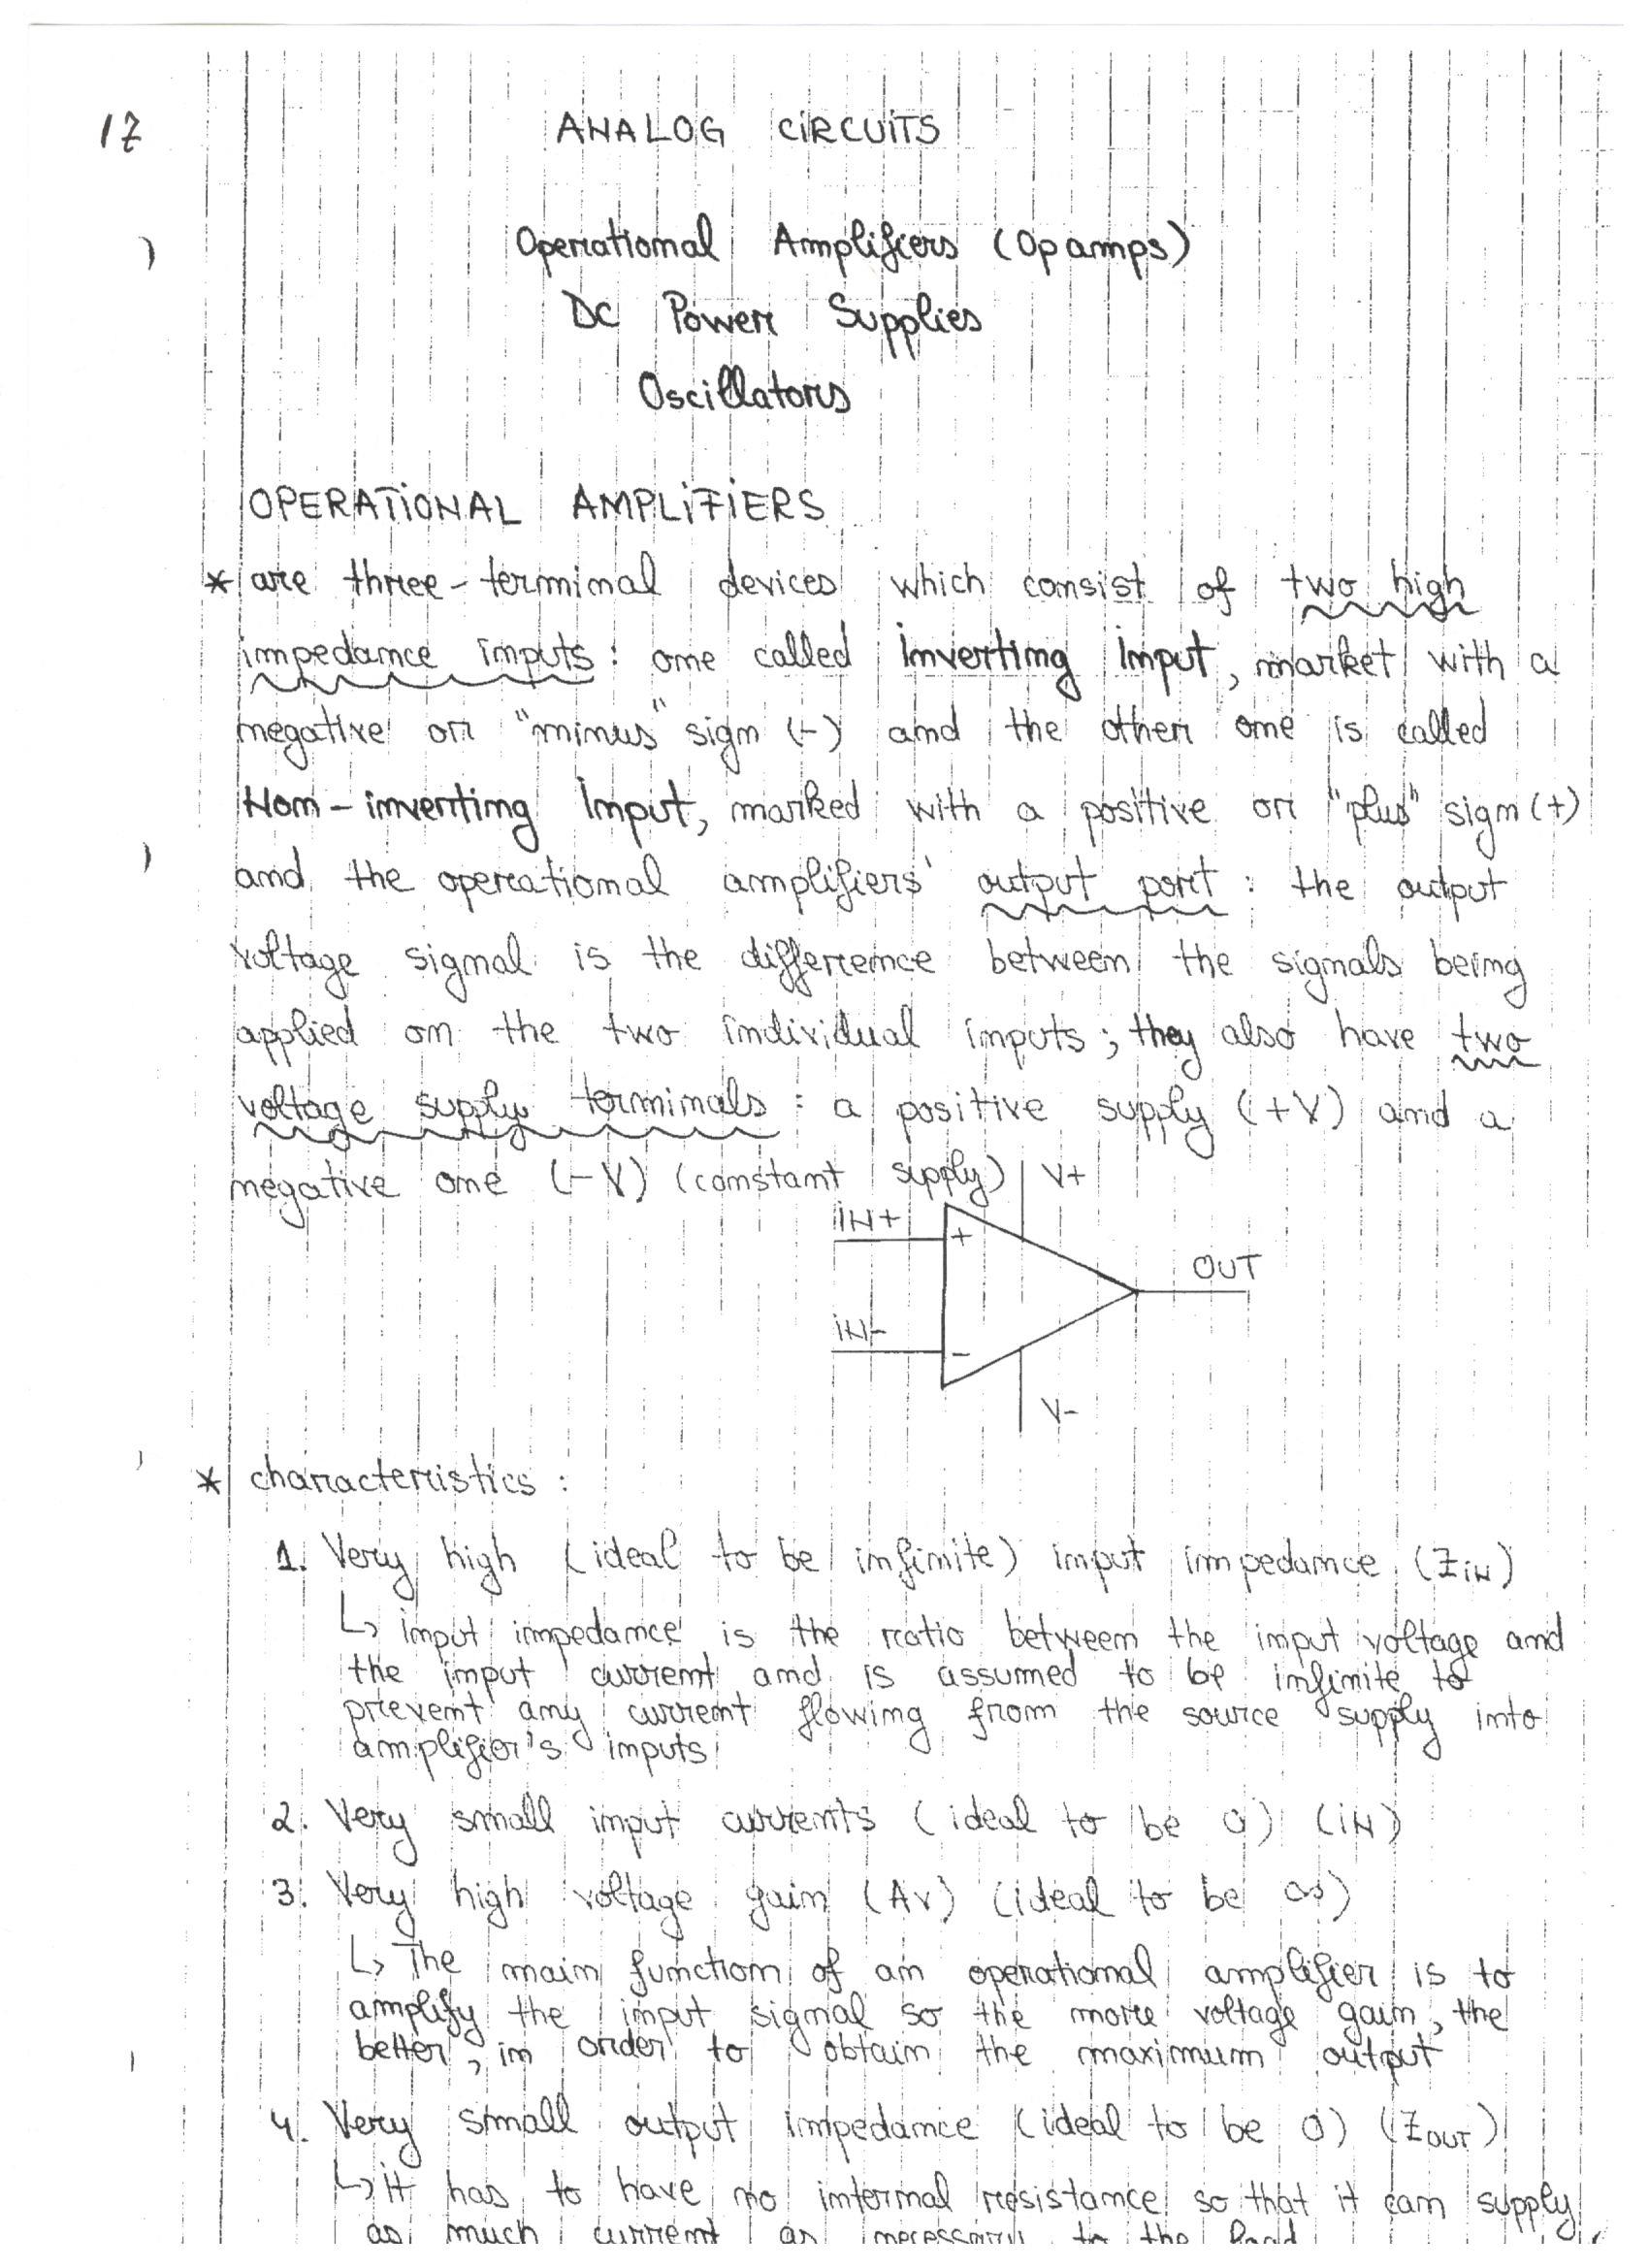 17
ANALOG CIRCUITS
Operational Amplifiers (Op amps)
DC Power Supplies
Oscillators
OPERATIONAL AMPLIFIERS
* are three-terminal devices which consist of two high
impedance inputs: one called Inverting Input, market with a
negative or "minus" sign (-) and the other one is called
Non-inverting Input, marked with a positive or "plus" sign (+)
and the operational amplifiers' output port: the output
voltage signal is the difference between the signals being
applied on the two individual inputs; they also have two
voltage supply terminals: a positive supply (+V) and a
negative one (-V) (constant supply)
V+
IN+
+
OUT
IN-
-
V-
* characteristics:
1. Very high (ideal to be infinite) input impedance (ZIN)
↳ input impedance is the ratio between the input voltage and
the input current and is assumed to be infinite to
prevent any current flowing from the source supply into
amplifier's inputs
2. Very small input currents (ideal to be 0) (iN)
3. Very high voltage gain (Av) (ideal to be ∞)
↳ The main function of an operational amplifier is to
amplify the input signal so the more voltage gain, the
better, in order to obtain the maximum output
4. Very small output impedance (ideal to be 0) (ZOUT)
↳ it has to have no internal resistance so that it can supply
as much current as necessary to the load